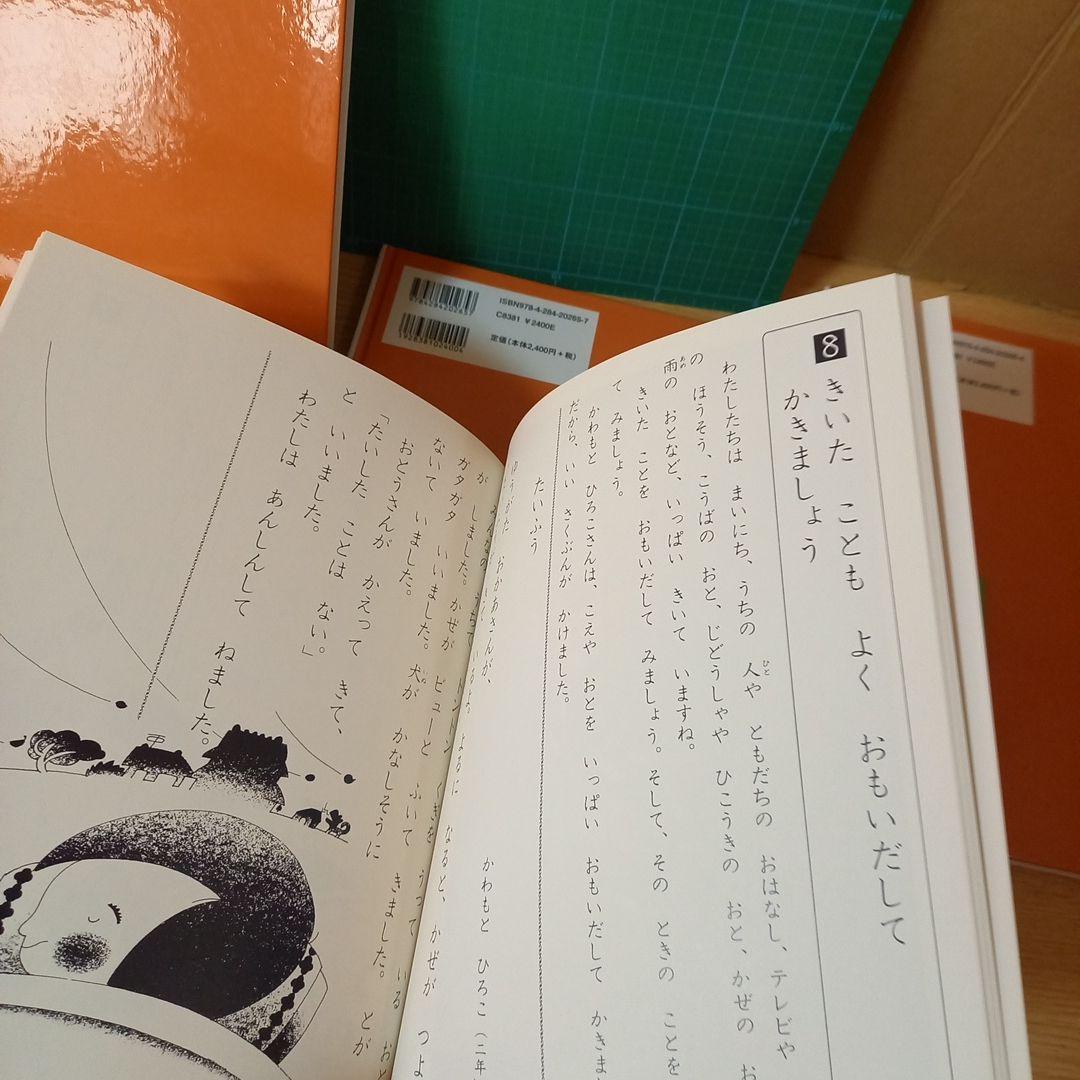 8 きいた ことも よく おもいだして
かきましょう
わたしたちは まいにち、うちの 人や ともだちの おはなし、テレビや
の ほうそう、こうばの おと、じどうしゃや ひこうきの おと、かぜの お
雨の おとなど、いっぱい きいて いますね。
きいた ことを おもいだして みましょう。そして、その ときの ことを
て みましょう。
かわもと ひろこさんは、こえや おとを いっぱい おもいだして かきま
だから、いい さくぶんが かけました。
たいふう
かわもと ひろこ（二年
ゆうがた、おかあさんが、
よるに なると、かぜが つよ
うって いる おと
が しました。かぜが ビューと ふいて きました。とが
ガタガタ いいました。犬が かなしそうに
ないて いました。
おとうさんが かえって きて、
「たいした ことは ない。」
と いいました。
わたしは あんしんして ねました。
ISBN978-4-284-20265-7
C8381 ¥2400E
定価（本体2,400円＋税）
9784284202657
1928381024004